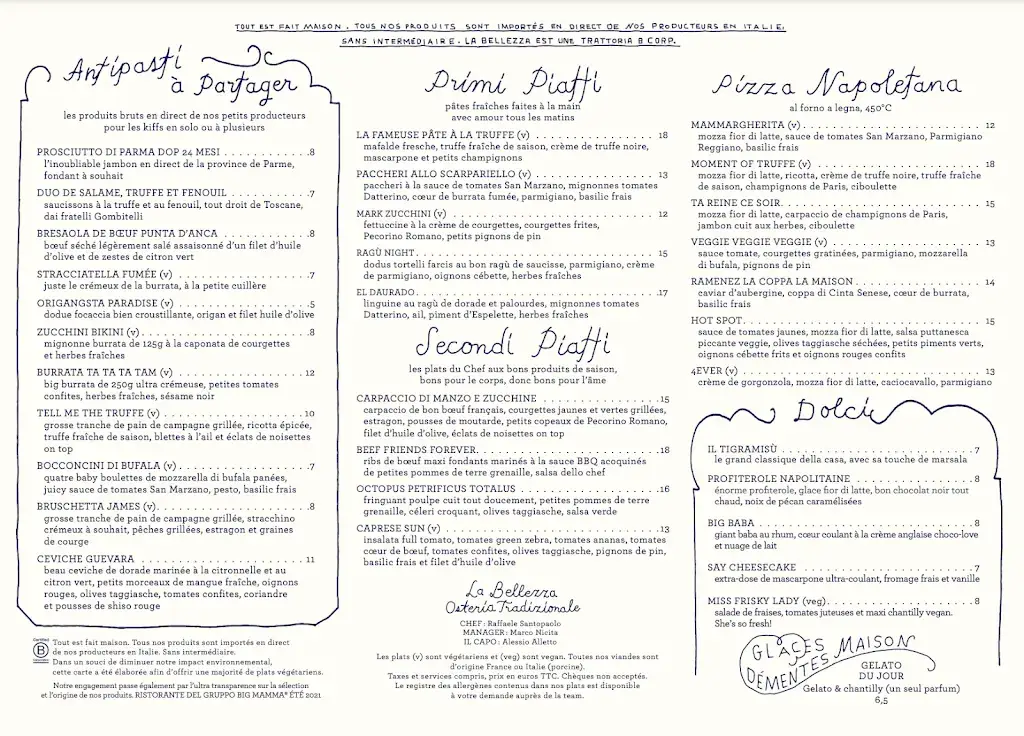 TOUT EST FAIT MAISON. TOUS NOS PRODUITS SONT IMPORTÉS EN DIRECT DE NOS PRODUCTEURS EN ITALIE.
SANS INTERMÉDIAIRE. LA BELLEZZA EST UNE TRATTORIA B CORP.
Antipasti
à Partager
les produits bruts en direct de nos petits producteurs
pour les kiffs en solo ou à plusieurs
PROSCIUTTO DI PARMA DOP 24 MESI . . . . . . . . . . . .8
l'inoubliable jambon en direct de la province de Parme,
fondant à souhait
DUO DE SALAME, TRUFFE ET FENOUIL . . . . . . . . . . .7
saucissons à la truffe et au fenouil, tout droit de Toscane,
dai fratelli Gombitelli
BRESAOLA DE BŒUF PUNTA D'ANCA . . . . . . . . . . . .8
bœuf séché légèrement salé assaisonné d'un filet d'huile
d'olive et de zestes de citron vert
STRACCIATELLA FUMÉE (v) . . . . . . . . . . . . . . . . . .7
juste le crémeux de la burrata, à la petite cuillère
ORIGANGSTA PARADISE (v) . . . . . . . . . . . . . . . . . .5
dodue focaccia bien croustillante, origan et filet huile d'olive
ZUCCHINI BIKINI (v) . . . . . . . . . . . . . . . . . . . . . .8
mignonne burrata de 125g à la caponata de courgettes
et herbes fraîches
BURRATA TA TA TA TAM (v) . . . . . . . . . . . . . . . . . 12
big burrata de 250g ultra crémeuse, petites tomates
confites, herbes fraîches, sésame noir
TELL ME THE TRUFFE (v) . . . . . . . . . . . . . . . . . . .10
grosse tranche de pain de campagne grillée, ricotta épicée,
truffe fraîche de saison, blettes à l'ail et éclats de noisettes
on top
BOCCONCINI DI BUFALA (v) . . . . . . . . . . . . . . . . . .7
quatre baby boulettes de mozzarella di bufala panées,
juicy sauce de tomates San Marzano, pesto, basilic frais
BRUSCHETTA JAMES (v) . . . . . . . . . . . . . . . . . . . .8
grosse tranche de pain de campagne grillée, stracchino
crémeux à souhait, pêches grillées, estragon et graines
de courge
CEVICHE GUEVARA . . . . . . . . . . . . . . . . . . . . . . 11
beau ceviche de dorade marinée à la citronnelle et au
citron vert, petits morceaux de mangue fraîche, oignons
rouges, olives taggiasche, tomates confites, coriandre
et pousses de shiso rouge
Certified
B
Tout est fait maison. Tous nos produits sont importés en direct
de nos producteurs en Italie. Sans intermédiaire.
Dans un souci de diminuer notre impact environnemental,
cette carte a été élaborée afin d'offrir une majorité de plats végétariens.
Notre engagement passe également par l'ultra transparence sur la sélection
et l'origine de nos produits. RISTORANTE DEL GRUPPO BIG MAMMA® ÉTÉ 2021
Primi Piatti
pâtes fraîches faites à la main
avec amour tous les matins
LA FAMEUSE PÂTE À LA TRUFFE (v) . . . . . . . . . . . . . 18
mafalde fresche, truffe fraîche de saison, crème de truffe noire,
mascarpone et petits champignons
PACCHERI ALLO SCARPARIELLO (v) . . . . . . . . . . . . . 13
paccheri à la sauce de tomates San Marzano, mignonnes tomates
Datterino, cœur de burrata fumée, parmigiano, basilic frais
MARK ZUCCHINI (v) . . . . . . . . . . . . . . . . . . . . . . 12
fettuccine à la crème de courgettes, courgettes frites,
Pecorino Romano, petits pignons de pin
RAGÙ NIGHT . . . . . . . . . . . . . . . . . . . . . . . . . . 15
dodus tortelli farcis au bon ragù de saucisse, parmigiano, crème
de parmigiano, oignons cébette, herbes fraîches
EL DAURADO . . . . . . . . . . . . . . . . . . . . . . . . . .17
linguine au ragù de dorade et palourdes, mignonnes tomates
Datterino, ail, piment d'Espelette, herbes fraîches
Secondi Piatti
les plats du Chef aux bons produits de saison,
bons pour le corps, donc bons pour l'âme
CARPACCIO DI MANZO E ZUCCHINE . . . . . . . . . . . . .15
carpaccio de bon bœuf français, courgettes jaunes et vertes grillées,
estragon, pousses de moutarde, petits copeaux de Pecorino Romano,
filet d'huile d'olive, éclats de noisettes on top
BEEF FRIENDS FOREVER. . . . . . . . . . . . . . . . . . . .18
ribs de bœuf maxi fondants marinés à la sauce BBQ acoquinés
de petites pommes de terre grenaille, salsa dello chef
OCTOPUS PETRIFICUS TOTALUS . . . . . . . . . . . . . . .16
fringuant poulpe cuit tout doucement, petites pommes de terre
grenaille, céleri croquant, olives taggiasche, salsa verde
CAPRESE SUN (v) . . . . . . . . . . . . . . . . . . . . . . .13
insalata full tomato, tomates green zebra, tomates ananas, tomates
cœur de bœuf, tomates confites, olives taggiasche, pignons de pin,
basilic frais et filet d'huile d'olive
La Bellezza
Osteria Tradizionale
CHEF : Raffaele Santopaolo
MANAGER : Marco Nicita
IL CAPO : Alessio Alletto
Les plats (v) sont végétariens et (veg) sont vegan. Toutes nos viandes sont
d'origine France ou Italie (porcine).
Taxes et services compris, prix en euros TTC. Chèques non acceptés.
Le registre des allergènes contenus dans nos plats est disponible
à votre demande auprès de la team.
Pizza Napoletana
al forno a legna, 450°C
MAMMARGHERITA (v) . . . . . . . . . . . . . . . . . . . . . 12
mozza fior di latte, sauce de tomates San Marzano, Parmigiano
Reggiano, basilic frais
MOMENT OF TRUFFE (v) . . . . . . . . . . . . . . . . . . . 18
mozza fior di latte, ricotta, crème de truffe noire, truffe fraîche
de saison, champignons de Paris, ciboulette
TA REINE CE SOIR. . . . . . . . . . . . . . . . . . . . . . . 15
mozza fior di latte, carpaccio de champignons de Paris,
jambon cuit aux herbes, ciboulette
VEGGIE VEGGIE VEGGIE (v) . . . . . . . . . . . . . . . . . 13
sauce tomate, courgettes gratinées, parmigiano, mozzarella
di bufala, pignons de pin
RAMENEZ LA COPPA LA MAISON . . . . . . . . . . . . . . 14
caviar d'aubergine, coppa di Cinta Senese, cœur de burrata,
basilic frais
HOT SPOT. . . . . . . . . . . . . . . . . . . . . . . . . . . . 15
sauce de tomates jaunes, mozza fior di latte, salsa puttanesca
piccante veggie, olives taggiasche séchées, petits piments verts,
oignons cébette frits et oignons rouges confits
4EVER (v) . . . . . . . . . . . . . . . . . . . . . . . . . . . . 13
crème de gorgonzola, mozza fior di latte, caciocavallo, parmigiano
Dolci
IL TIGRAMISÙ . . . . . . . . . . . . . . . . . . . . . . . . .7
le grand classique della casa, avec sa touche de marsala
PROFITEROLE NAPOLITAINE . . . . . . . . . . . . . . . .8
énorme profiterole, glace fior di latte, bon chocolat noir tout
chaud, noix de pécan caramélisées
BIG BABA . . . . . . . . . . . . . . . . . . . . . . . . . . . .8
giant baba au rhum, cœur coulant à la crème anglaise choco-love
et nuage de lait
SAY CHEESECAKE . . . . . . . . . . . . . . . . . . . . . . .7
extra-dose de mascarpone ultra-coulant, fromage frais et vanille
MISS FRISKY LADY (veg) . . . . . . . . . . . . . . . . . . .8
salade de fraises, tomates juteuses et maxi chantilly vegan.
She's so fresh!
GLACES MAISON
DÉMENTES
GELATO
DU JOUR
Gelato & chantilly (un seul parfum)
6,5